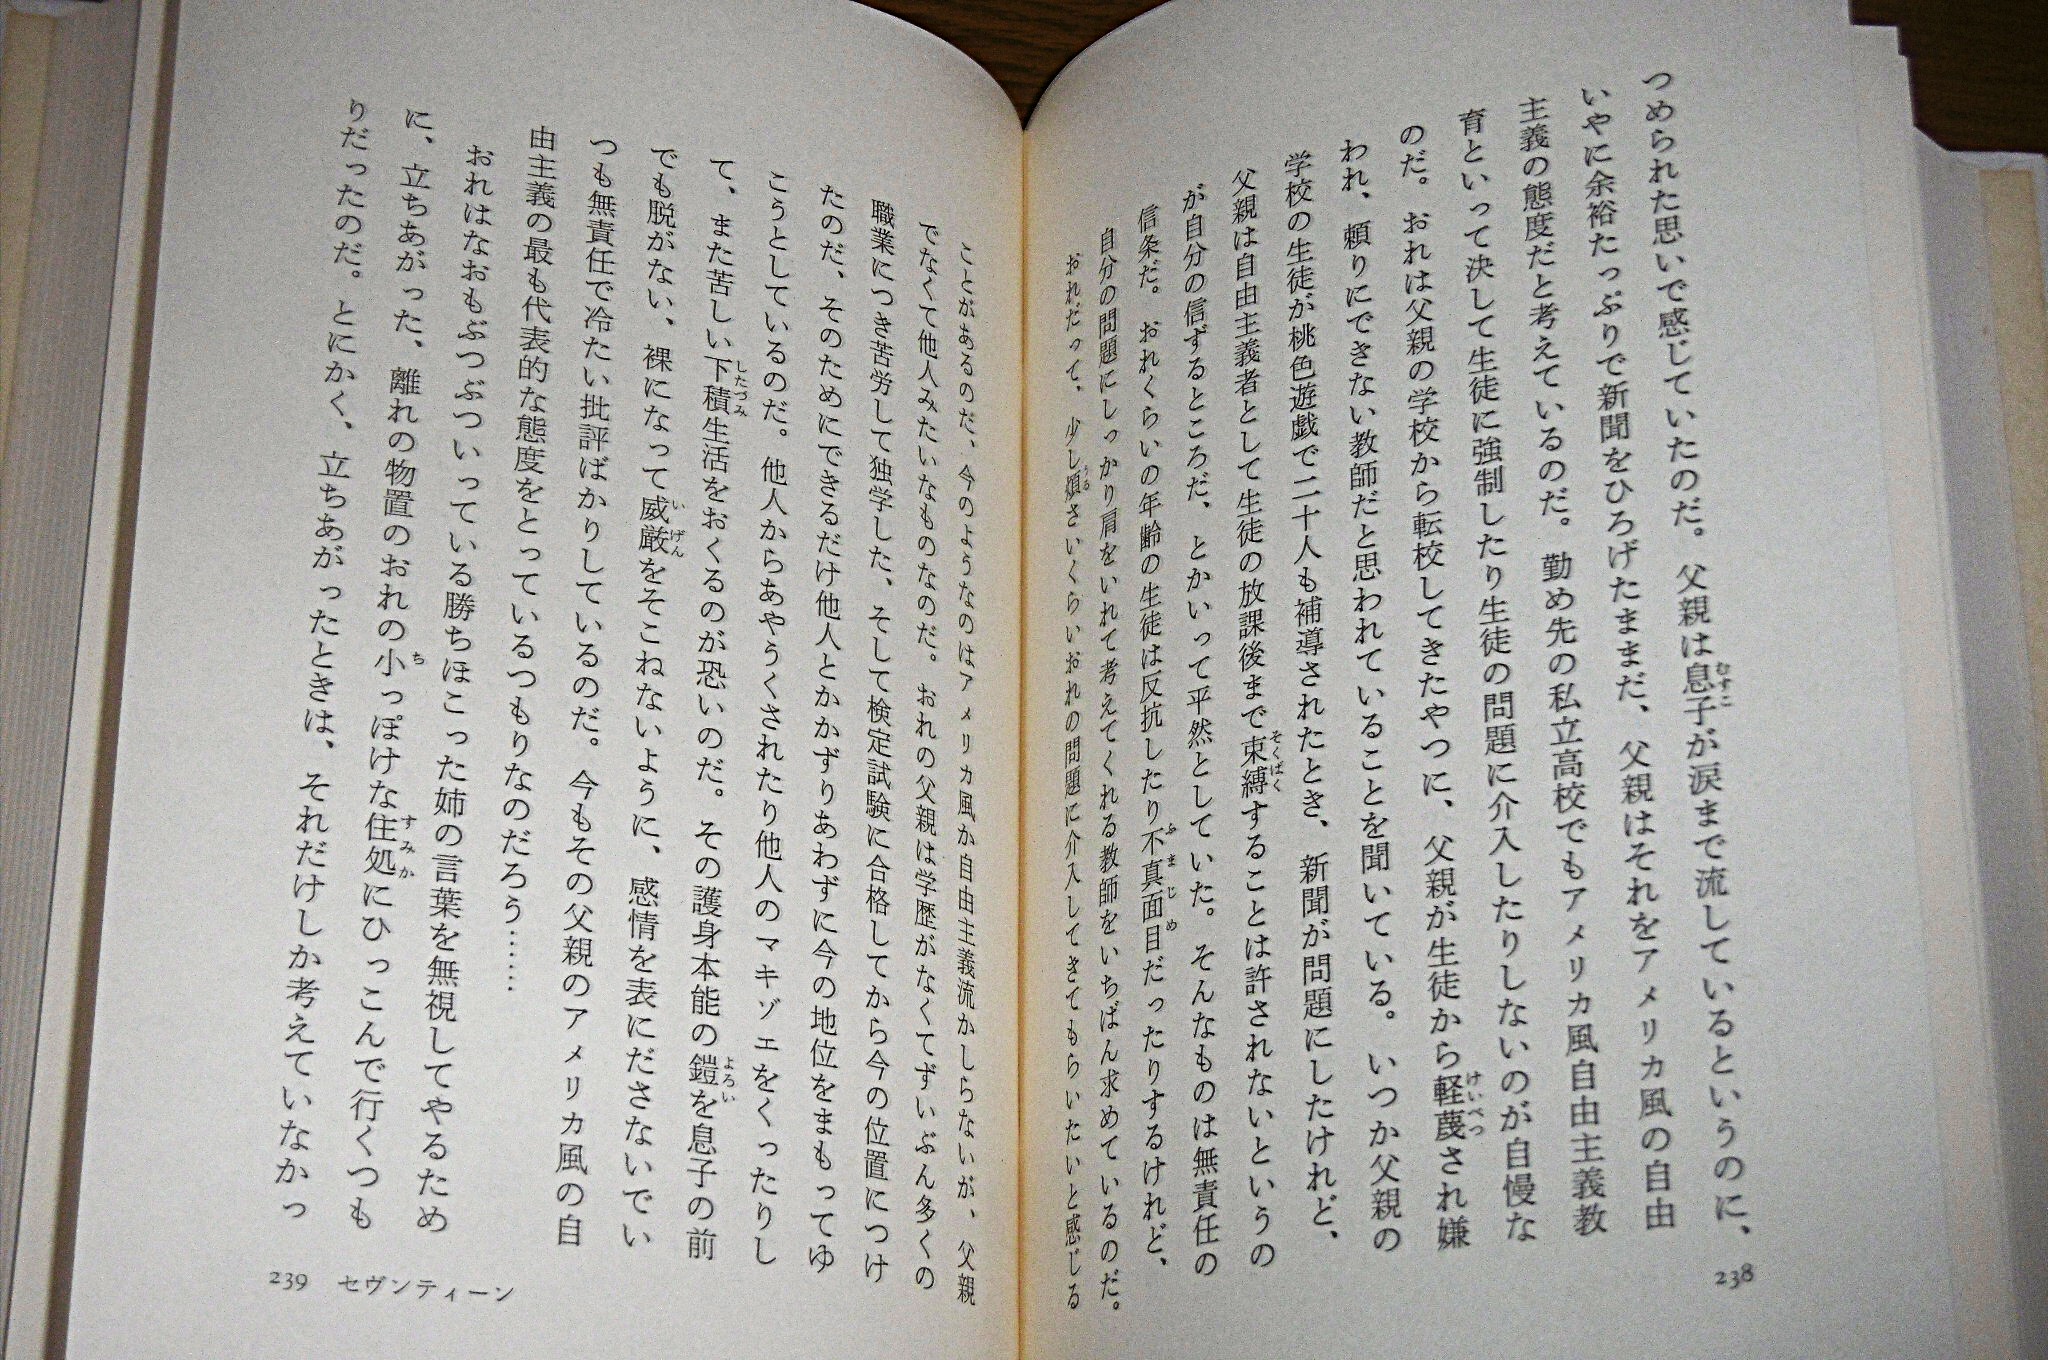 つめられた思いで感じていたのだ。父親は息子が涙まで流しているというのに、
いやに余裕たっぷりで新聞をひろげたままだ、父親はそれをアメリカ風の自由
主義の態度だと考えているのだ。勤め先の私立高校でもアメリカ風自由主義教
育といって決して生徒に強制したり生徒の問題に介入したりしないのが自慢な
のだ。おれは父親の学校から転校してきたやつに、父親が生徒から軽蔑され嫌
われ、頼りにできない教師だと思われていることを聞いている。いつか父親の
学校の生徒が桃色遊戯で二十人も補導されたとき、新聞が問題にしたけれど、
父親は自由主義者として生徒の放課後まで束縛することは許されないというの
が自分の信ずるところだ、とかいって平然としていた。そんなものは無責任の
信条だ。おれくらいの年齢の生徒は反抗したり不真面目だったりするけれど、
自分の問題にしっかり肩をいれて考えてくれる教師をいちばん求めているのだ。
おれだって、少し煩さいくらいおれの問題に介入してきてもらいたいと感じる
238
ことがあるのだ、今のようなのはアメリカ風か自由主義流かしらないが、父親
でなくて他人みたいなものなのだ。おれの父親は学歴がなくてずいぶん多くの
職業につき苦労して独学した、そして検定試験に合格してから今の位置につけ
たのだ、そのためにできるだけ他人とかかずりあわずに今の地位をまもってゆ
こうとしているのだ。他人からあやうくされたり他人のマキゾエをくったりし
て、また苦しい下積生活をおくるのが恐いのだ。その護身本能の鎧を息子の前
でも脱がない、裸になって威厳をそこねないように、感情を表にださないでい
つも無責任で冷たい批評ばかりしているのだ。今もその父親のアメリカ風の自
由主義の最も代表的な態度をとっているつもりなのだろう……
おれはなおもぶつぶついっている勝ちほこった姉の言葉を無視してやるため
に、立ちあがった、離れの物置のおれの小っぽけな住処にひっこんで行くつも
りだったのだ。とにかく、立ちあがったときは、それだけしか考えていなかっ
239 セヴンティーン